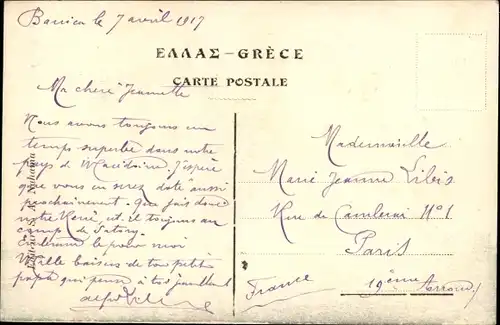 Banica le 7 avril 1917
ΕΛΛΑΣ-GRÈCE
CARTE POSTALE
Ma chere Jeannette
Nous avons toujours un
temps superbe dans notre
pays de Macédoine. J'espère
que vous en serez doté aussi
prochainement. Que fais donc
notre René, est il toujours au
camp de Satory.
Embrasse le pour moi
Mille baisers de ton petit
papa qui pense à toi
Mademoiselle
Marie Jeanne Libis
Rue de Cambrai N° 1
Paris
19ème Arrond.
France
Editeur S. A. Nahama